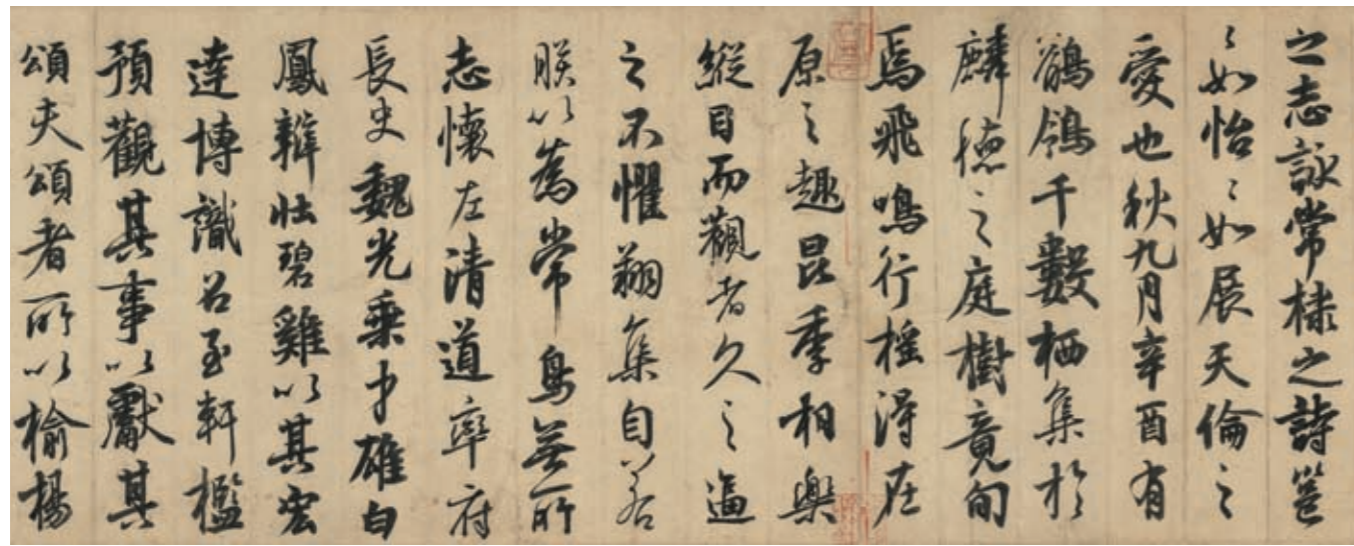 之志詠常棣之詩邕
〻如怡〻如展天倫之
愛也秋九月辛酉有
鶺鴒千數栖集於
麟德之庭樹竟旬
焉飛鳴行搖得在
原之趣昆季相樂
縱目而觀者久之逼
之不懼翔集自若
朕以為常鳥無所
志懷左清道率府
長史魏光乘才雄白
鳳辯壯碧雞以其宏
達博識召至軒檻
預觀其事以獻其
頌夫頌者所以榆揚